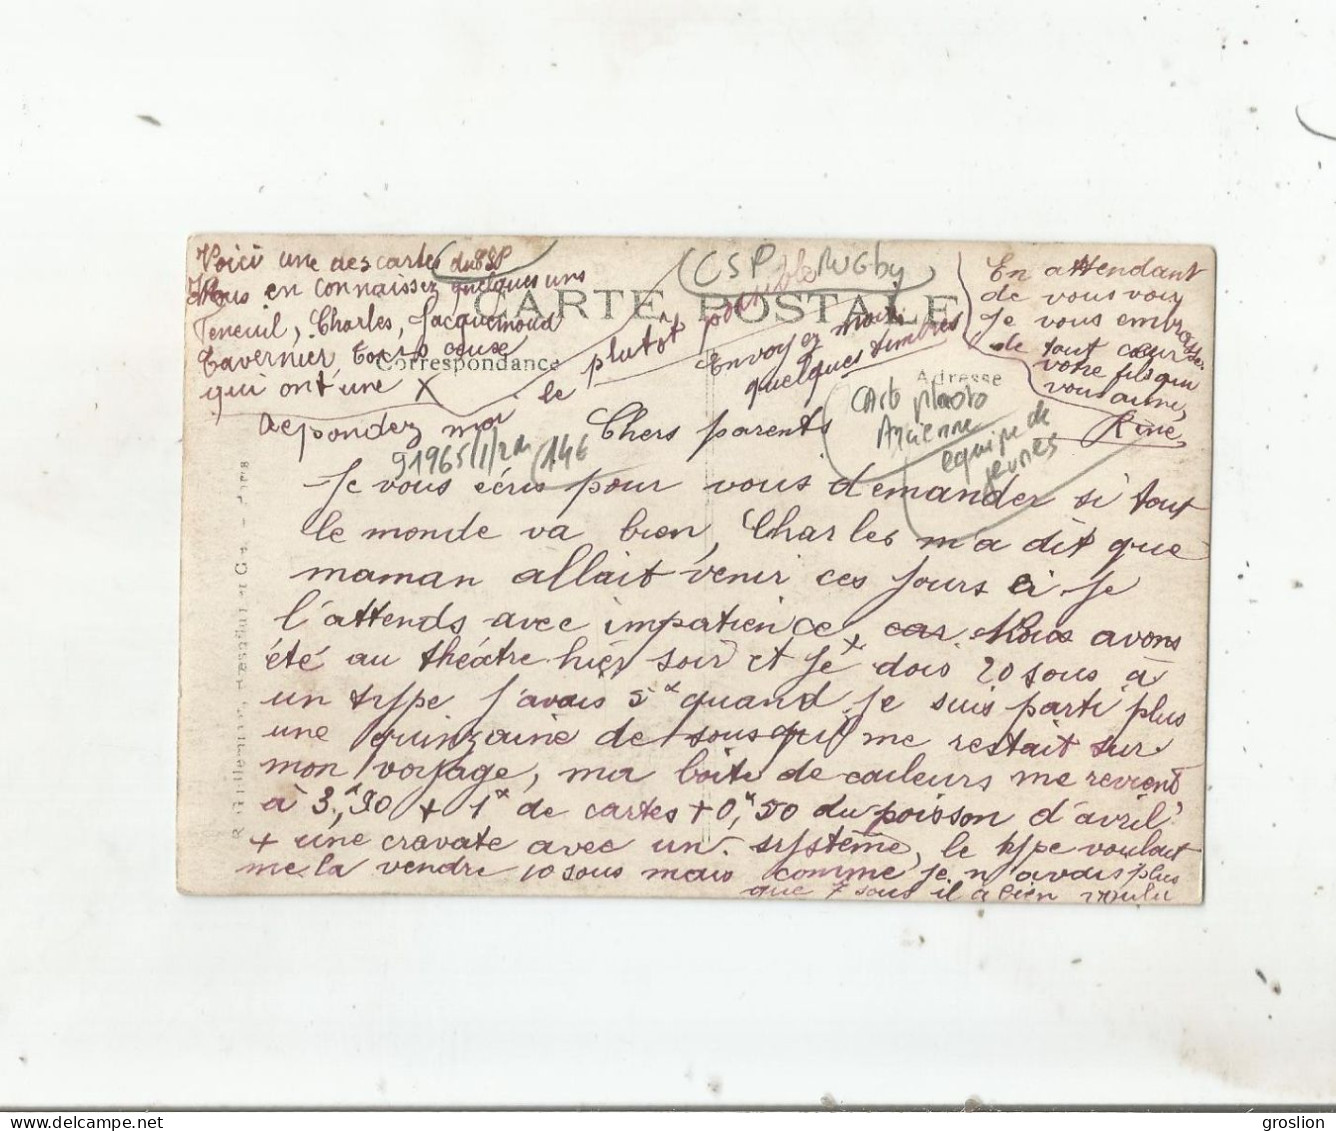 Voici une des cartes du CSP
Vous en connaissez quelques uns
Teneuil, Charles, Jacquemoud
Tavernier, tous ceux
qui ont une X
Repondez moi le plutôt possible
Envoyez moi
quelques timbres
CSP RUGBY
CARTE POSTALE
Correspondance
Adresse
En attendant
de vous voir
Je vous embrasse
de tout cœur
votre fils qui
vous aime,
René
Carte photo
Ancienne
equipe de
jeunes
91965/1/2m
14€
Chers parents
Je vous écris pour vous demander si tout
le monde va bien, Charles m'a dit que
maman allait venir ces jours ci je
l'attends avec impatience, car Nous avons
été au théâtre hier soir et je dois 20 sous à
un type j'avais 5 quand je suis parti plus
une quinzaine de sous qu'il me restait sur
mon voyage, ma boîte de couleurs me revient
à 3,90 + 1 de cartes + 0,50 du poisson d'avril
+ une cravate avec un système, le type voulait
me la vendre 10 sous mais comme je n'avais plus
que 7 sous il a bien voulu
groslion